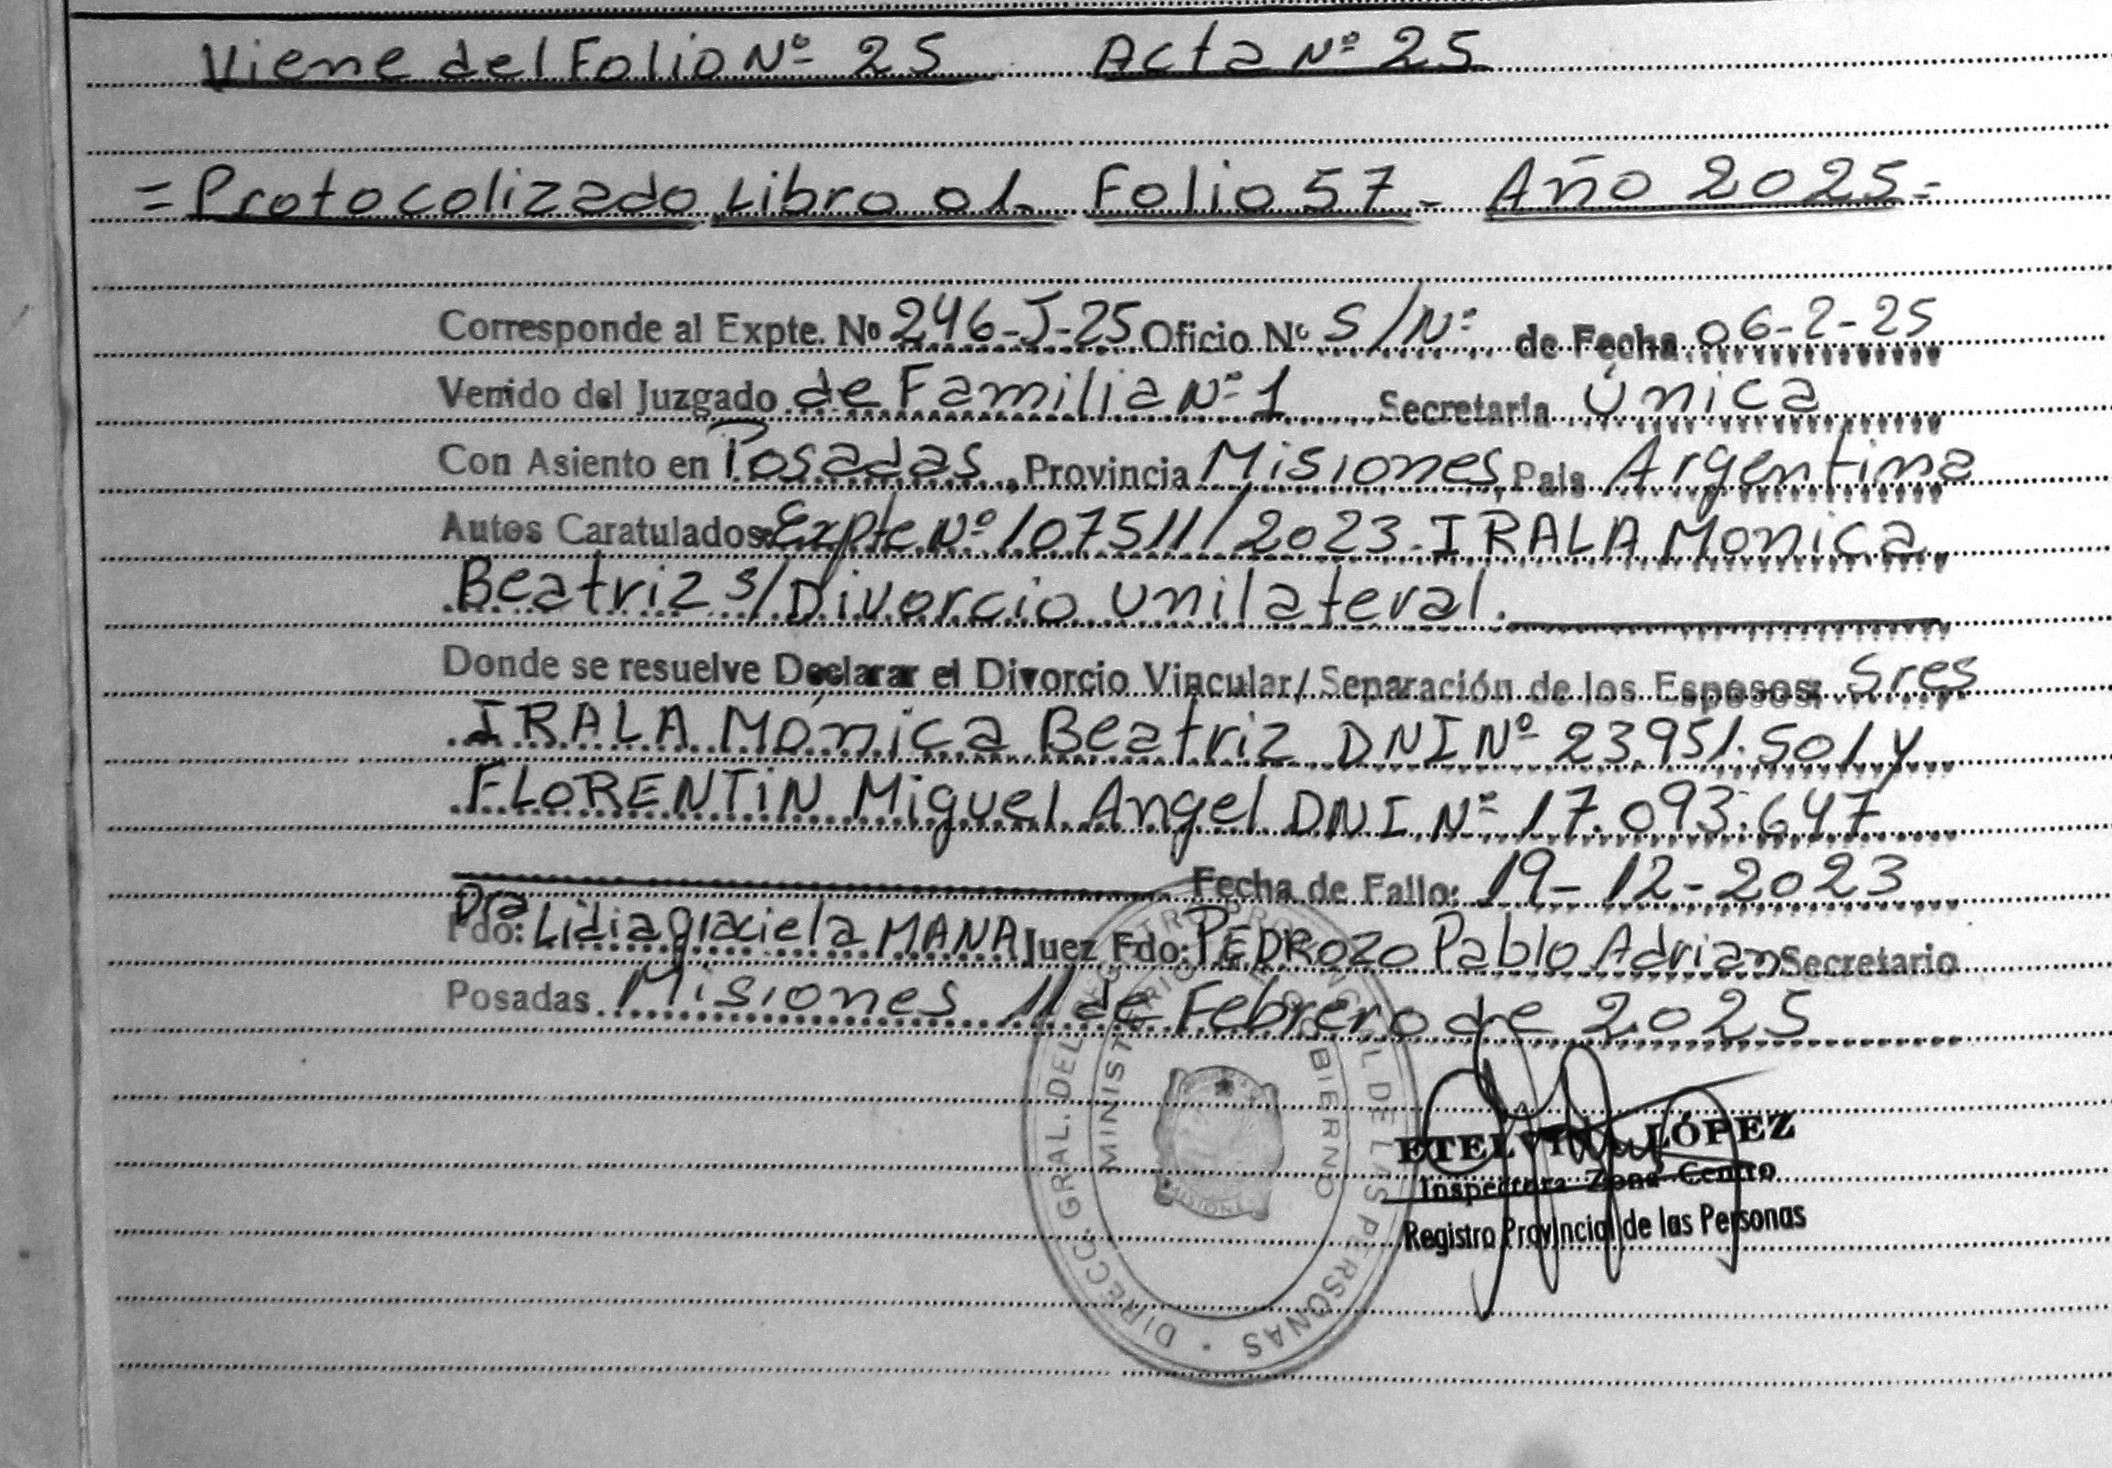 Viene del Folio Nº 25 Acta Nº 25
= Protocolizado Libro 01- Folio 57- Año 2025=
Corresponde al Expte. Nº 246-J-25 Oficio Nº S/Nº de Fecha 06-2-25
Venido del Juzgado de Familia Nº 1 Secretaría Única
Con Asiento en Posadas, Provincia Misiones País Argentina
Autos Caratulados: Expte Nº 107511/2023-IRALA Monica
Beatriz s/Divorcio Unilateral.
Donde se resuelve Declarar el Divorcio Vincular/Separación de los Esposos: Sres
IRALA Mónica Beatriz DNI Nº 23.951.501 y
FLORENTiN Miguel Angel DNI Nº 17.093.647
Fecha de Fallo: 19-12-2023
Dra
Fdo: Lidia graciela MANA Juez Fdo: PEDROZO Pablo Adrian Secretario
Posadas Misiones 11 de Febrero de 2025
DIRECC. GRAL. DEL REGISTRO PROVINCIAL DE LAS PERSONAS
MINISTERIO DE GOBIERNO
MISIONES
ETELVINA LÓPEZ
Inspectora Zona Centro
Registro Provincial de las Personas